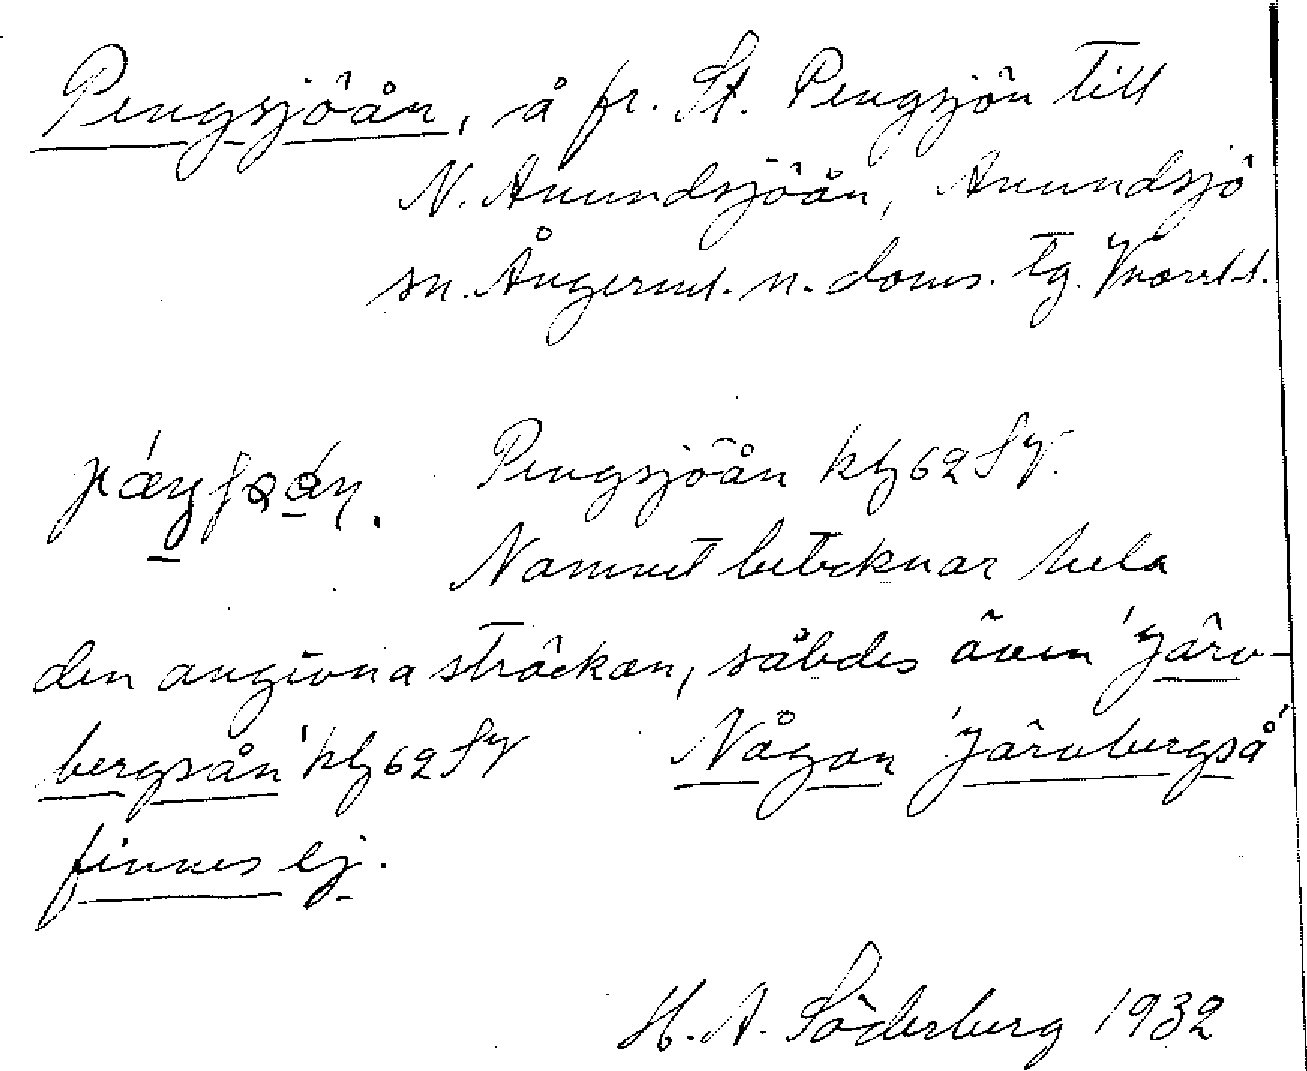 Pengsjöån, å fr. St. Pengsjön till
N. Anundsjöån, Anundsjö
sn. Ångerml. n. doms. tg. Västl.
Pengsjöån kbl 62 SV.
Namnet betecknar hela
den angivna sträckan, således även 'Järv-
bergsån' kbl 62 SV Någon 'Järvbergså'
finnes ej.
H. A. Söderberg 1932